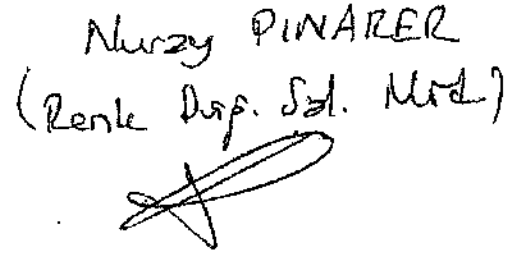 Nuray PINARER
(Renk Dış. Sat. Müd.)